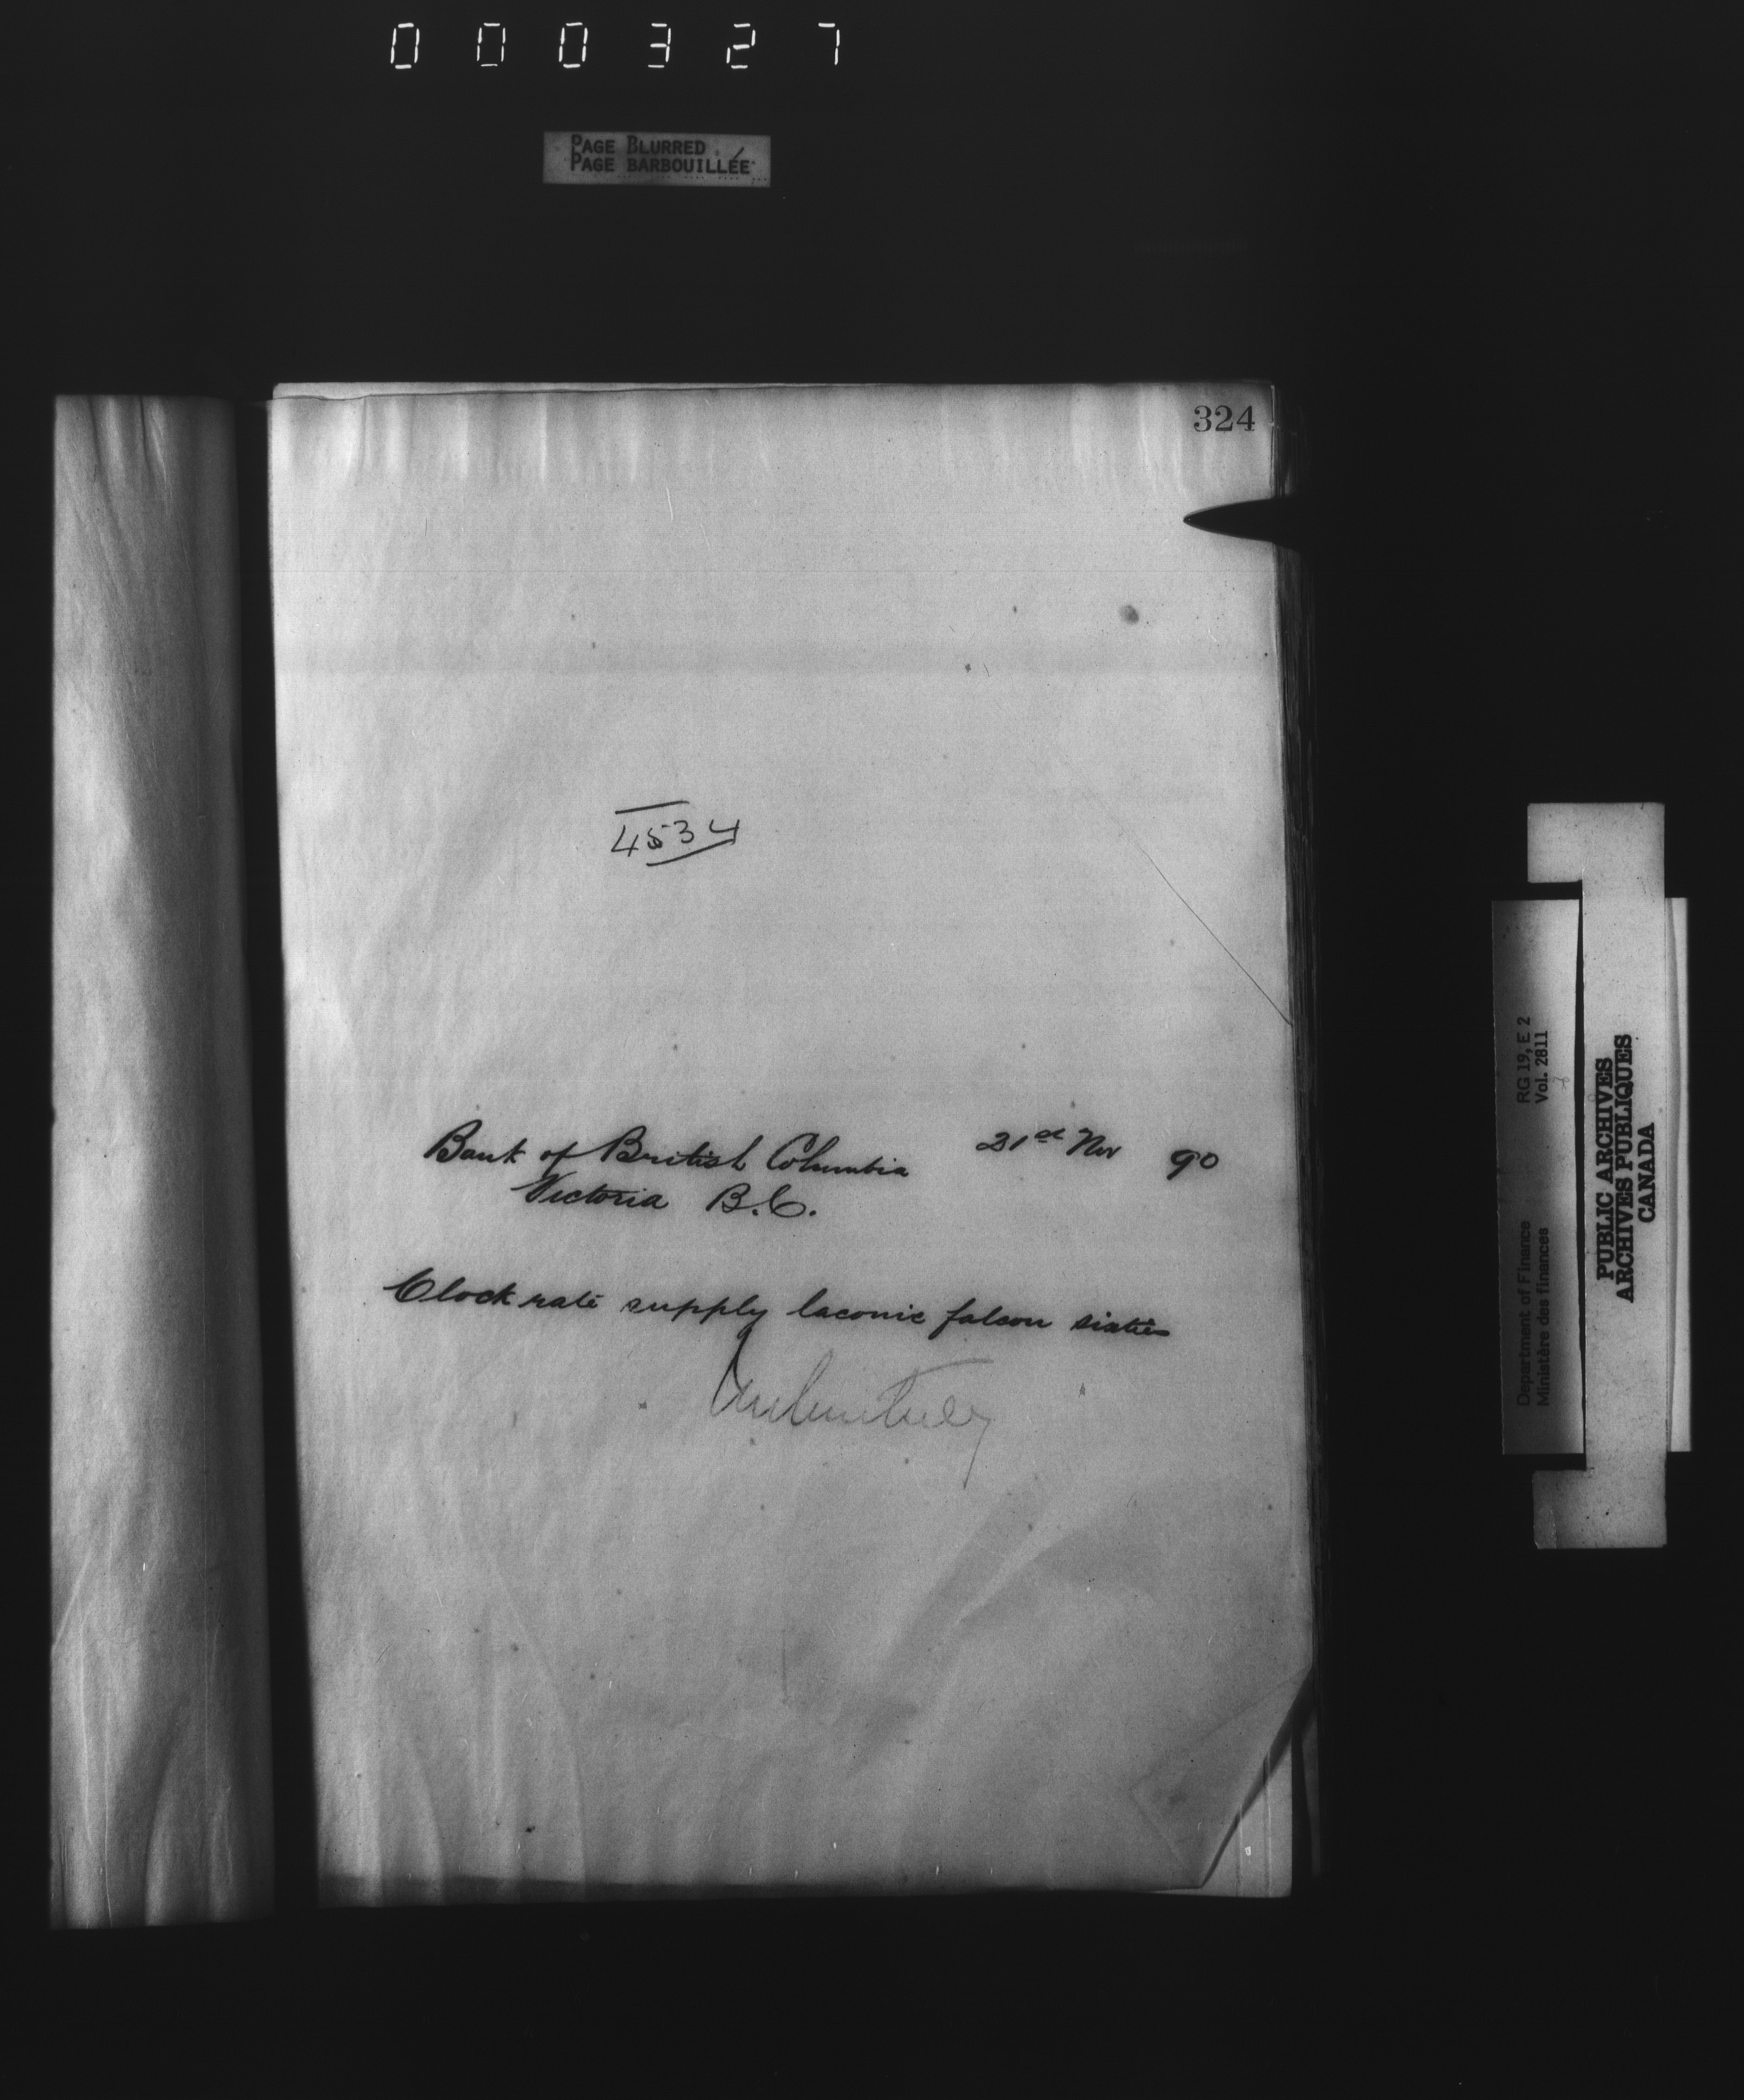 000327
PAGE BLURRED
PAGE BARBOUILLÉE
324
4534
Bank of British Columbia 21st Nov 90
Victoria B.C.
Clock rate supply laconic falcon sixties
Department of Finance RG 19, E 2
Ministère des finances Vol. 2811
PUBLIC ARCHIVES
ARCHIVES PUBLIQUES
CANADA